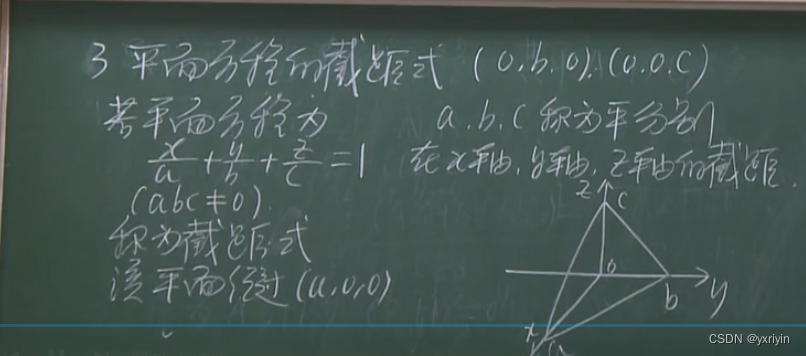 3 平面方程的截距式
若平面方程为
x/a + y/b + z/c = 1
(abc≠0).
称为截距式
该平面经过 (a,0,0)
(0.b.0).(0.0.C)
a.b.C 称为平分别
在x轴,y轴,z轴的截距.
z
C
0
b
y
x
a
CSDN @yxriyin